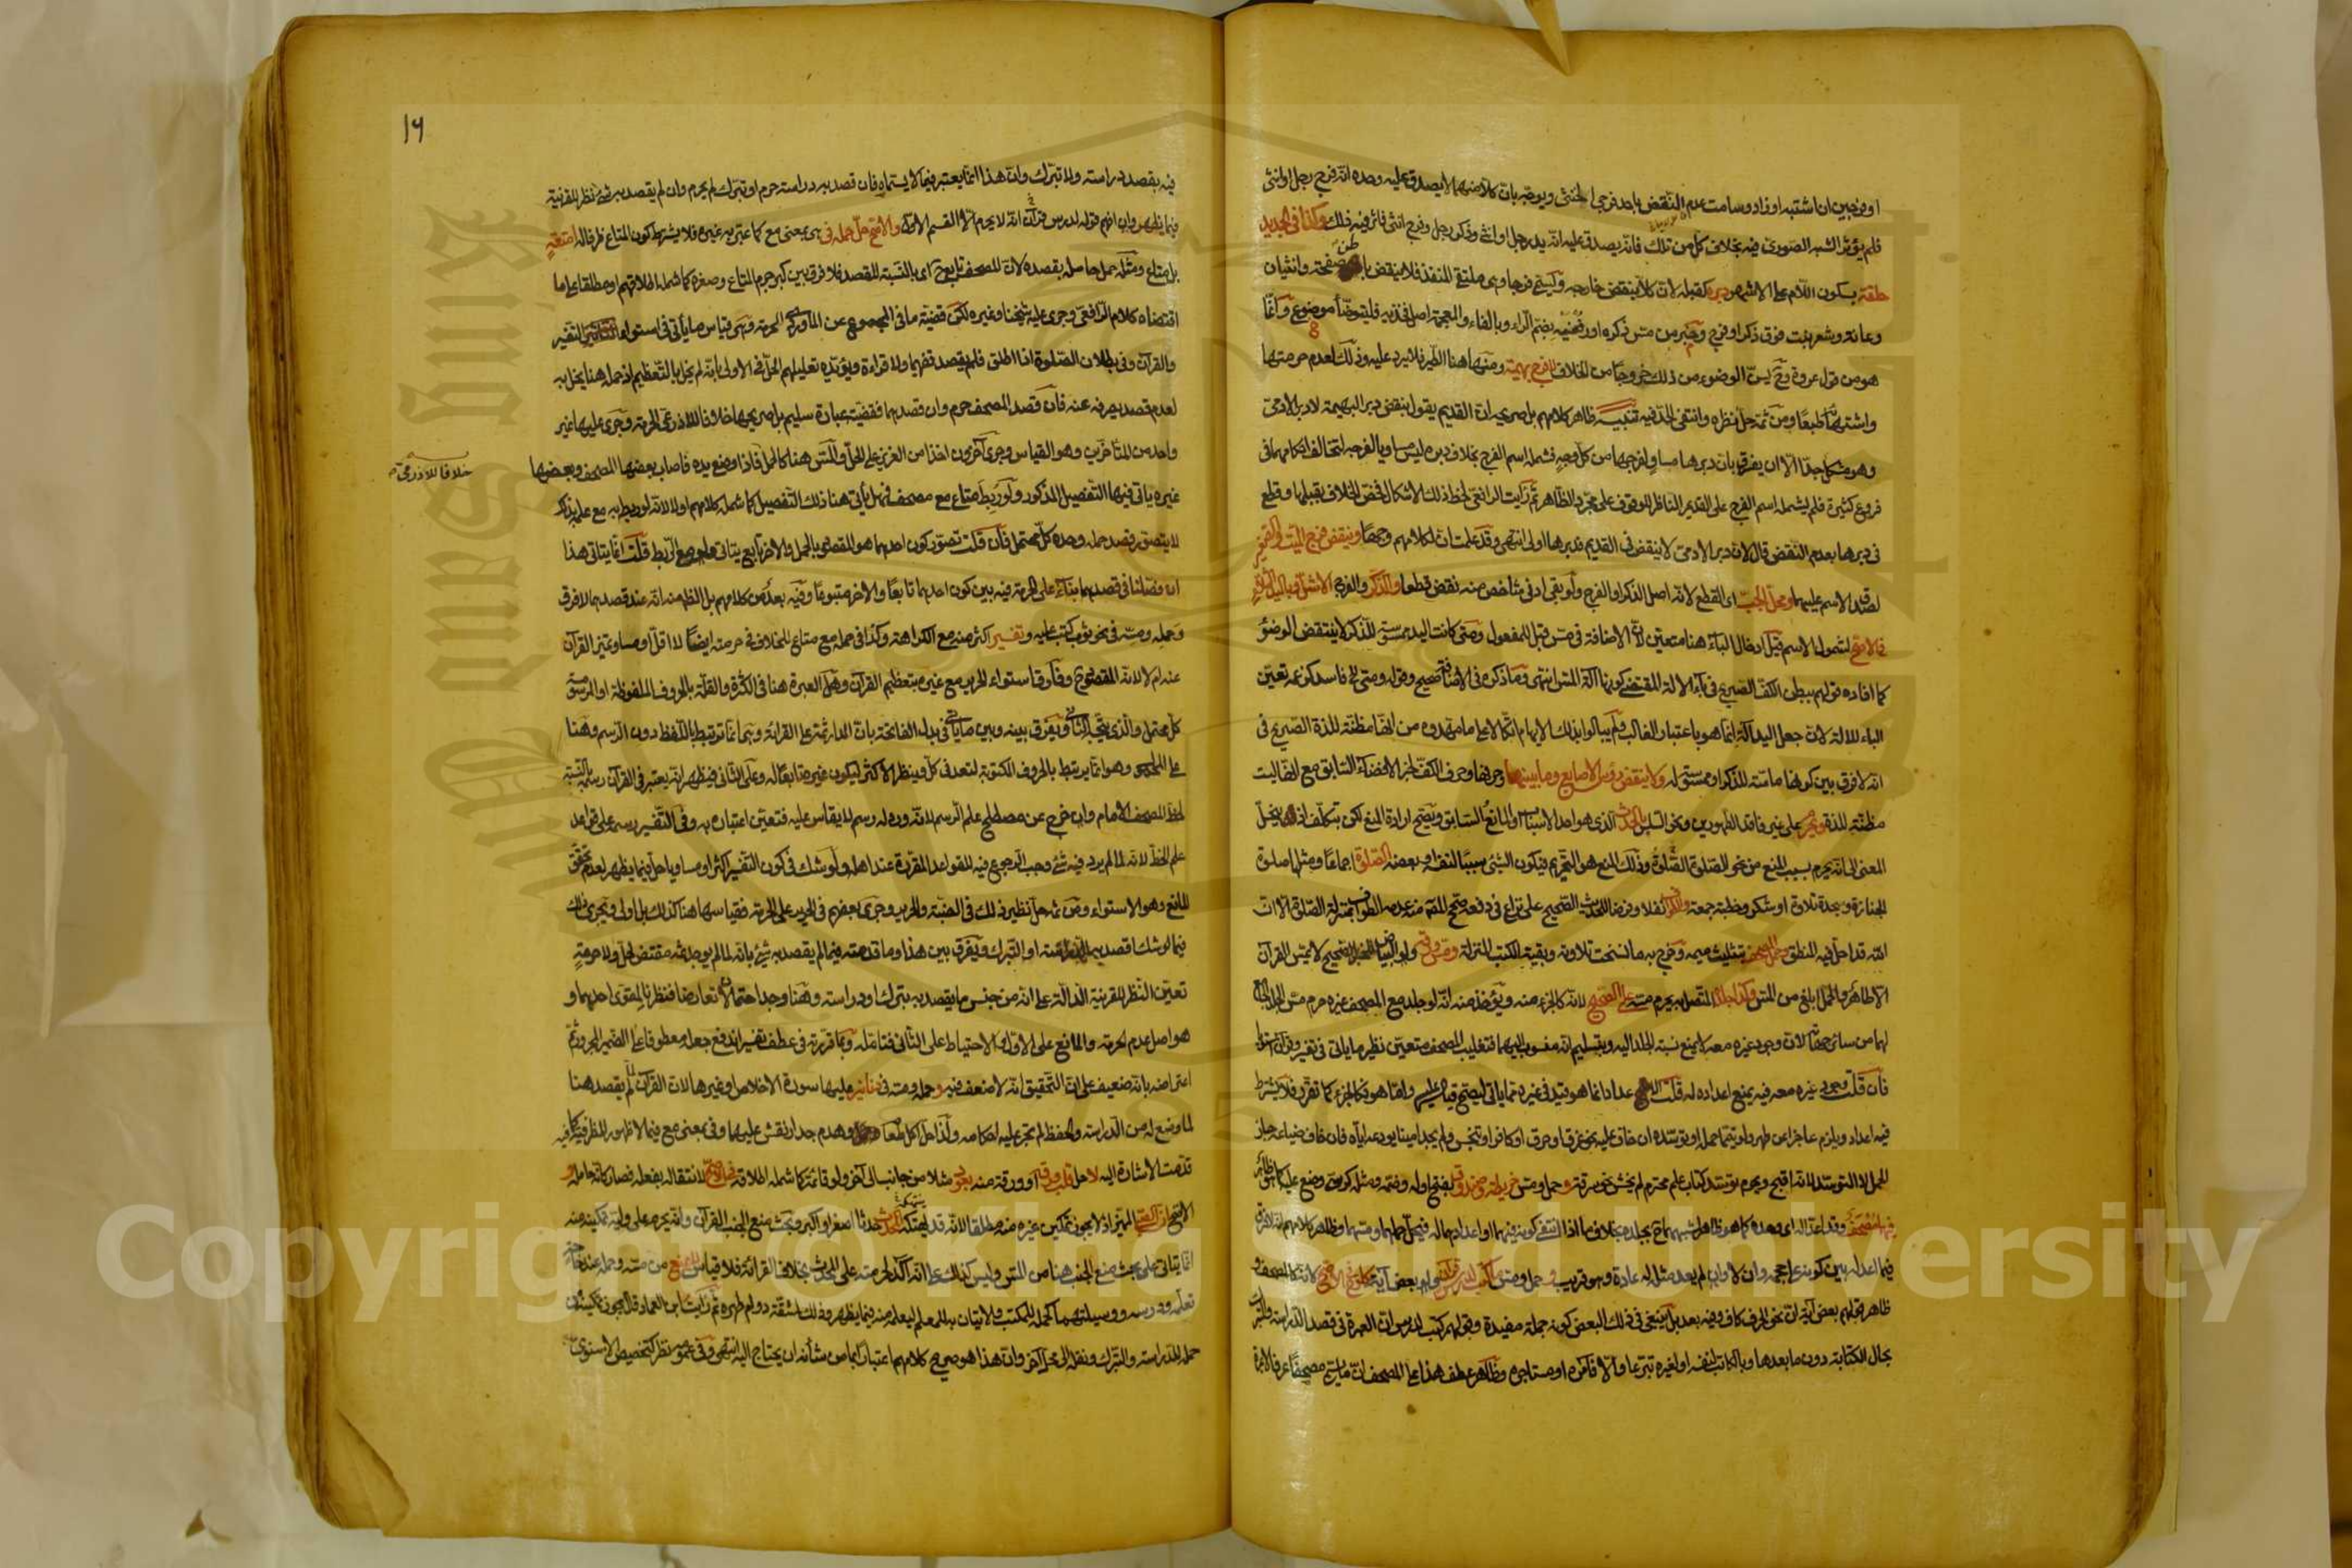 او فرجين ان اشتبه او زاد وسامت عدم النقض باحد فرجي الخنثى ويوجه بان كلا منهما لا يصدق عليه وحده انه فرج رجل او انثى
فلم يؤثر الشبه الصوري فيه بخلاف كل من تلك فانه يصدق عليه انه يد رجل او انثى وذكر رجل وفرج انثى فاثر فيه ذلك وكذا في الجديد
حلقة بسكون اللام على الاشهر دبره كقبله لان كلا ينقض خارجه ويسمى فرجا وهي ملتقى المنفذ فلا ينقض باطن صفحة وانثيان
وعانة وشعر نبت فوق ذكر او فرج وخبر من مس ذكره او رفغيه بضم الراء وبالفاء والمعجمة اصل فخذيه فليتوضأ موضوع وانما
هو من قول عروة وح يسن الوضوء من ذلك خروجا من الخلاف لا فرج بهيمة ومنها هنا الطير فلا يرد عليه وذلك لعدم حرمتها
واشتهائها طبعا ومن ثم حل نظره وانتفى الحد فيه تنبيه ظاهر كلامهم بل صريحه ان القديم يقول بنقض دبر البهيمة لا دبر الادمي
وهو مشكل جدا الا ان يفرق بان دبرها مساو لفرجها من كل وجه فشمله اسم الفرج بخلاف دبره ليس مساويا لفرجه لتخالف احكامهما في
فروع كثيرة فلم يشمله اسم الفرج على القديم الناظر للوقوف على مجرد الظاهر ثم رايت الرافعي لحظ ذلك الاشكال فخص الخلاف بقبلها وقطع
في دبرها بعدم النقض قال لان دبر الادمي لا ينقض في القديم فدبرها اولى انتهى وقد علمت ان لكلامهم وجها وينقض فرج الميت والصغير
لصدق الاسم عليهما ومحل الجب اي القطع لانه اصل الذكر او الفرج ولو بقي ادنى شاخص منه نقض قطعا والذكر والفرج الاشل وباليد الشلاء
في الاصح لشمول الاسم قيل ادخال الباء هنا متعين لان الاضافة في مس قبل للمفعول ومتى كانت اليد ممسوسة للذكر لا ينتقض الوضوء
كما افاده قولهم ببطن الكف الصريح في باء الالة المقتضي كونها آلة المس انتهى وما ذكره في الاضافة صحيح وقوله ومتى الخ فاسد كزعمه تعين
الباء للالة لان جعل اليد الة انما هو باعتبار الغالب ولم يبالوا بذلك الايهام اتكالا على ما مهدوه من انها مظنة للذة الصريح في
انه لا فرق بين كونها ماسة للذكر او ممسوسة له ولا ينقض رؤس الاصابع وما بينها وحرفها وحرف الكف لخبر الافضاء السابق مع انها ليست
مظنة للذة ويحرم على غير فاقد الطهورين ونحو السلس بالحدث الذي هو احد الاسباب او المانع السابق ويصح ارادة المنع لكن بتكلف اذ ينحل
المعنى الى انه يحرم بسبب المنع من نحو الصلوة الصلوة وذلك المنع هو التحريم فيكون الشيء سببا لنفسه او بعضه الصلوة اجماعا ومثلها صلوة
الجنازة وسجدة تلاوة او شكر وخطبة جمعة والطواف نفلا وفرضا للحديث الصحيح على نزاع في رفعه صحح المص منه عدمه الطواف بمنزلة الصلوة الا ان
الله قد احل فيه النطق وحمل المصحف بتثليث ميمه وخرج به ما نسخت تلاوته وبقية الكتب المنزلة ومس ورقه ولو البياض للخبر الصحيح لا يمس القران
الا طاهر والحمل ابلغ من المس وكذا جلده المتصل به يحرم مسه على الصحيح لانه كالجزء منه ويؤخذ منه انه لو جلد مع المصحف غيره حرم مس الجلد الجامع
لهما من سائر جهاته لان وجود غيره معه لا يمنع نسبة الجلد اليه وبتسليم انه منسوب اليهما فتغليب المصحف متعين نظير ما ياتي في تفسير وقران استويا
فان قلت وجود غيره معه فيه يمنع اعداده له قلت الاعداد انما هو قيد في غيره مما ياتي ليصح قياسه عليه واما هو فكالجزء كما تقرر فلا يشترط
فيه اعداد ويلزم عاجزا عن طهر ولو تيمما حمله او توسده ان خاف عليه نحو غرق او حرق او كافر او تنجس ولم يجد امينا يودعه اياه فان خاف ضياعه جاز
الحمل لا التوسد لانه اقبح ويحرم توسد كتاب علم محترم لم يخش نحو سرقته وحمل ومس خريطة وصندوق بفتح اوله وضمه ومثله كرسي وضع عليه كما هو ظاهر
فيهما مصحف وقد اعدا له اي وحده كما هو ظاهر لشبههما ح بجلده بخلاف ما اذا انتفى كونه فيهما او اعدادهما له فيحل حملهما ومسهما وظاهر كلامهم انه لا فرق
فيما اعد له بين كونه على حجمه وان لا وان لم يعد مثله له عادة وهو قريب وحمل ومس ما كتب لدرس قران ولو بعض آية كلوح في الاصح لانه كالمصحف و
ظاهر قولهم بعض آية ان نحو الحرف كاف وفيه بعد بل ينبغي في ذلك البعض كونه جملة مفيدة وقولهم كتب لدرس ان العبرة في قصد الدراسة والتبرك
بحال الكتابة دون ما بعدها وبالكاتب لنفسه او لغيره تبرعا والا فآمره او مستاجره وظاهر عطف هذا على المصحف ان ما يسمى مصحفا عرفا لا عبرة
١٦
فيه بقصد دراسة ولا تبرك وان هذا انما يعتبر فيما لا يسماه فان قصد به دراسة حرم او تبرك لم يحرم وان لم يقصد به شيء نظر للقرينة
فيما يظهر وان افهم قوله لدرس قرآن انه لا يحرم الا القسم الاول والاصح حل حمله في هي بمعنى مع كما عبر به غيره فلا يشترط كون المتاع ظرفا له امتعة
بل متاع ومثله حمل حامله بقصده لان المصحف تابع ح اي بالنسبة للقصد فلا فرق بين كبر جرم المتاع وصغره كما شمله اطلاقهم او مطلقا على ما
اقتضاه كلام الرافعي وجرى عليه شيخنا وغيره لكن قضية ما في المجموع عن الماوردي الحرمة وهي قياس ما ياتي في استواء التفسير
والقرآن وفي بطلان الصلوة اذا اطلق فلم يقصد تفهيما ولا قراءة ويؤيده تعليلهم الحل في الاولى بانه لم يخل بالتعظيم اذ حمله هنا يخل به
لعدم قصد يصرفه عنه فان قصد المصحف حرم وان قصدهما فقضية عبارة سليم بل صريحها خلافا للاذرعي الحرمة وجرى عليها غير
واحد من المتاخرين وهو القياس وجرى آخرون اخذا من العزيز على الحل والمس هنا كالحمل فاذا وضع يده فاصاب بعضها المصحف وبعضها
خلافا للاذرعي
غيره ياتي فيها التفصيل المذكور ولو ربط متاع مع مصحف فهل ياتي هنا ذلك التفصيل كما شمله كلامهم او لا لانه لو ربط به مع علمه بذلك
لا يتصور قصد حمله وحده كل محتمل فان قلت تصور كون احدهما هو المقصود بالحمل والاخر تابع يتاتى ولو مع الربط قلت انما يتاتى هذا
ان فصلنا في قصدهما بناء على الحرمة فيه بين كون احدهما تابعا والاخر متبوعا وفيه بعد من كلامهم بل الظاهر منه انه عند قصدهما لا فرق
وحمله ومسه في نحو ثوب كتب عليه وتفسير اكثر منه مع الكراهة وكذا في حمله مع متاع للخلاف في حرمته ايضا لا اقل او مساو تميز القرآن
عنه ام لا لانه المقصود ح وفارق استواء الحرير مع غيره بتعظيم القرآن وهل العبرة هنا في الكثرة والقلة بالحروف الملفوظة او المرسومة
كل محتمل والذي يتجه الثاني ويفرق بينه وبين ما ياتي في بدل الفاتحة بان المدار ثم على القراءة وهي انما ترتبط باللفظ دون الرسم وهنا
على المحمول وهو انما يرتبط بالحروف المكتوبة لتعد في كل وينظر الاكثر ليكون غيره تابعا له وعلى الثاني فيظهر انه يعتبر في القرآن رسمه بالنسبة
لخط المصحف الامام وان خرج عن مصطلح علم الرسم لانه ورد له رسم لا يقاس عليه فتعين اعتباره به وفي التفسير رسمه على قواعد
علم الخط لانه لما لم يرد فيه شيء وجب الرجوع فيه للقواعد المقررة عند اهله ولو شك في كون التفسير اكثر او مساويا حل فيما يظهر لعدم تحقق
المانع وهو الاستواء ومن ثم حل نظير ذلك في الضبة والحرير وجرى بعضهم في الحرير على الحرمة فقياسها هنا كذلك بل اولى ويجري ذلك
فيما لو شك اقصد به الدراسة او التبرك ويفرق بين هذا وما قدمته فيما لم يقصد به شيء بانه لما لم يوجد ثم مقتض لحل ولا حرمة
تعين النظر للقرينة الدالة على انه من جنس ما يقصد به تبرك او دراسة وهنا وجد احتمالان تعارضا فنظرنا لمقوى احدهما و
هو اصل عدم الحرمة والمانع على الاول والاحتياط على الثاني فتامله وبما قررته في عطف تفسير اندفع جعله معطوفا على الضمير المجرور ثم
اعتراضه بانه ضعيف على ان التحقيق انه لا ضعف فيه وحمله ومسه في دنانير عليها سورة الاخلاص او غيرها لان القرآن لما لم يقصد هنا
لما وضع له من الدراسة والحفظ لم تجر عليه احكامه ولذا حل اكل طعام وهدم جدار نقش عليهما وفي بمعنى مع فيما لا ظهور للظرفية فيه كما
قدمت الاشارة اليه لا حمل قلب ورقه او ورقة منه بعود مثلا من جانب الى آخر ولو قائمة كما شمله اطلاقه في الاصح لانتقاله بفعله فصار كانه حامله و
الاصح ان الصبي المميز اذ لا يجوز تمكين غيره منه مطلقا لانه قد ينتهكه المحدث حدثا اصغر او اكبر وبحث منع الجنب القرآن وانه يحرم على وليه تمكينه منه
انما يتاتى على بحث منع الجنب هنا من المس وليس كذلك على انه آكد لحرمته على المحدث بخلاف القراءة فلا قياس لا يمنع من مسه وحمله عند حاجة
تعلمه ودرسه ووسيلتهما كحمله للمكتب والاتيان به للمعلم ليعلمه منه فيما يظهر وذلك لمشقة دوام طهره ثم رايت ابن العماد قال يجوز تمكينه من
حمله للدراسة والتبرك ونقله الى محل آخر وان هذا هو صريح كلامهم اعتبارا بما من شأنه ان يحتاج اليه انتهى وفي عمومه نظر كتخصيص الاسنوي
Copyright © King Saud University
King Saud University
1957